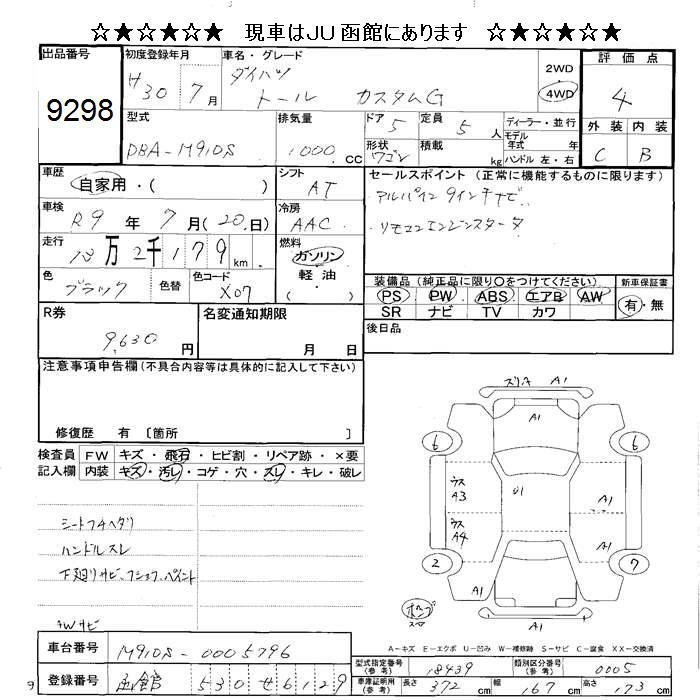 ☆★☆★☆ 現車はJU函館にあります ☆★☆★☆
出品番号 9298
初度登録年月 H30 7月
車名・グレード ダイハツ トール カスタムG
2WD 4WD
評価点 4
外装 内装
C B
型式 DBA-M910S
排気量 1000 CC
ドア 5 定員 5人
形状 ワゴン 積載 kg
ディーラー・並行
モデル年式 年式
ハンドル 左・右
車歴 自家用・( )
シフト AT
セールスポイント (正常に機能するものに限ります)
アルパイン9インチナビ
リモコンエンジンスターター
車検 R9年 7月(20日)
冷房 AAC
走行 万2千179km
燃料 ガソリン 軽油 ( )
色 ブラック 色替 色コード X07
装備品 (純正品に限り○をつけてください)
PS PW ABS エアB AW
SR ナビ TV カワ
新車保証書 有・無
R券 9,630円
名変通知期限 月 日
後日品
注意事項申告欄(不具合内容等は具体的に記入して下さい)
修復歴 有 〔箇所 〕
検査員記入欄 FW キズ・飛石・ヒビ割・リペア跡・×要
内装 キズ・汚レ・コゲ・穴・スレ・キレ・破レ
シートフチヘタリ
ハンドルスレ
下廻リサビ、フショク、ペイント
AWサビ
ズリキ A1
A1
6 6
ウス A3
U1
A1
ウス A4
A1
2 7
A1
A1
A-キズ E-エクボ U-凹み W-補修跡 S-サビ C-腐食 XX-交換済
車台番号 M910S-0005796
登録番号 函館 530 せ 6129
型式指定番号(参考) 18439
類別区分番号(参考) 0005
車庫証明用(参考) 長さ 372cm 幅 167cm 高さ 173cm